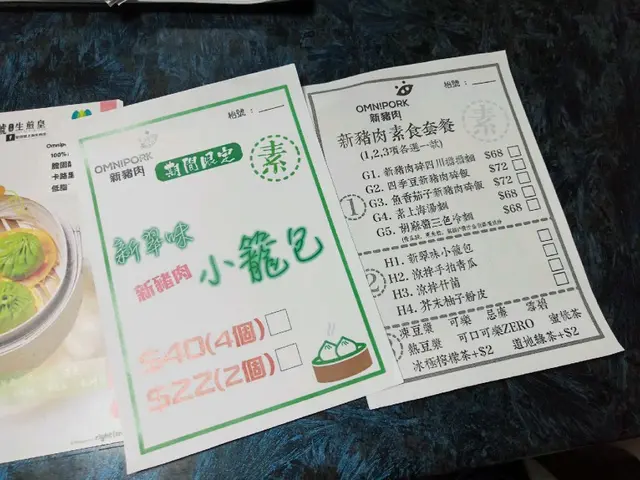 生煎皇
100%
低脂
枱號：
OMNIPORK
新豬肉
期間限定
素
新翠味
新豬肉
小籠包
$40(4個)
$22(2個)
枱號：
OMNIPORK
新豬肉
素
新豬肉素食套餐
(1,2,3項各選一款)
1
G1. 新豬肉碎四川擔擔麵 $68
G2. 四季豆新豬肉碎飯 $72
G3. 魚香茄子新豬肉碎飯 $72
G4. 素上海湯麵 $68
G5. 胡麻醬三色冷麵 $68
2
H1. 新翠味小籠包
H2. 涼拌手拍青瓜
H3. 涼拌什菌
H4. 芥末柚子粉皮
凍豆漿 可樂 忌廉 雪碧
熱豆漿 可口可樂ZERO 蜜桃茶
冰極檸檬茶+$2 道地綠茶+$2